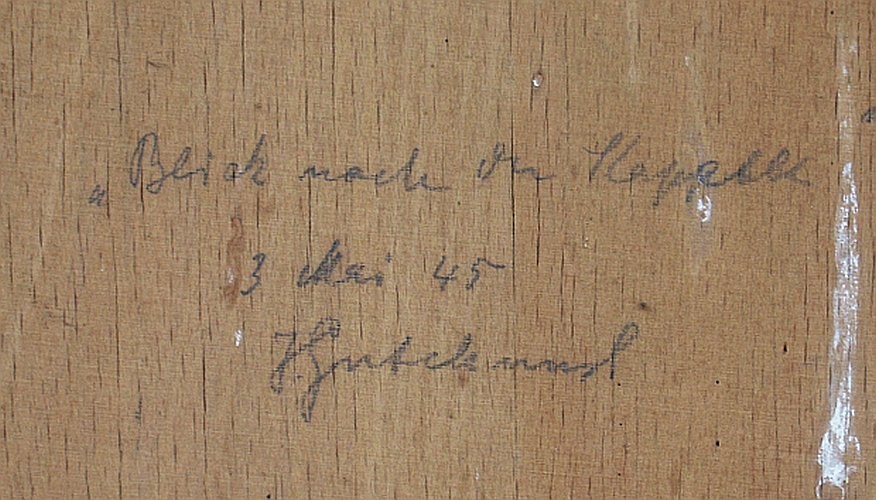 „Blick nach der Kapelle
3 Mai 45
H. Gutekunst